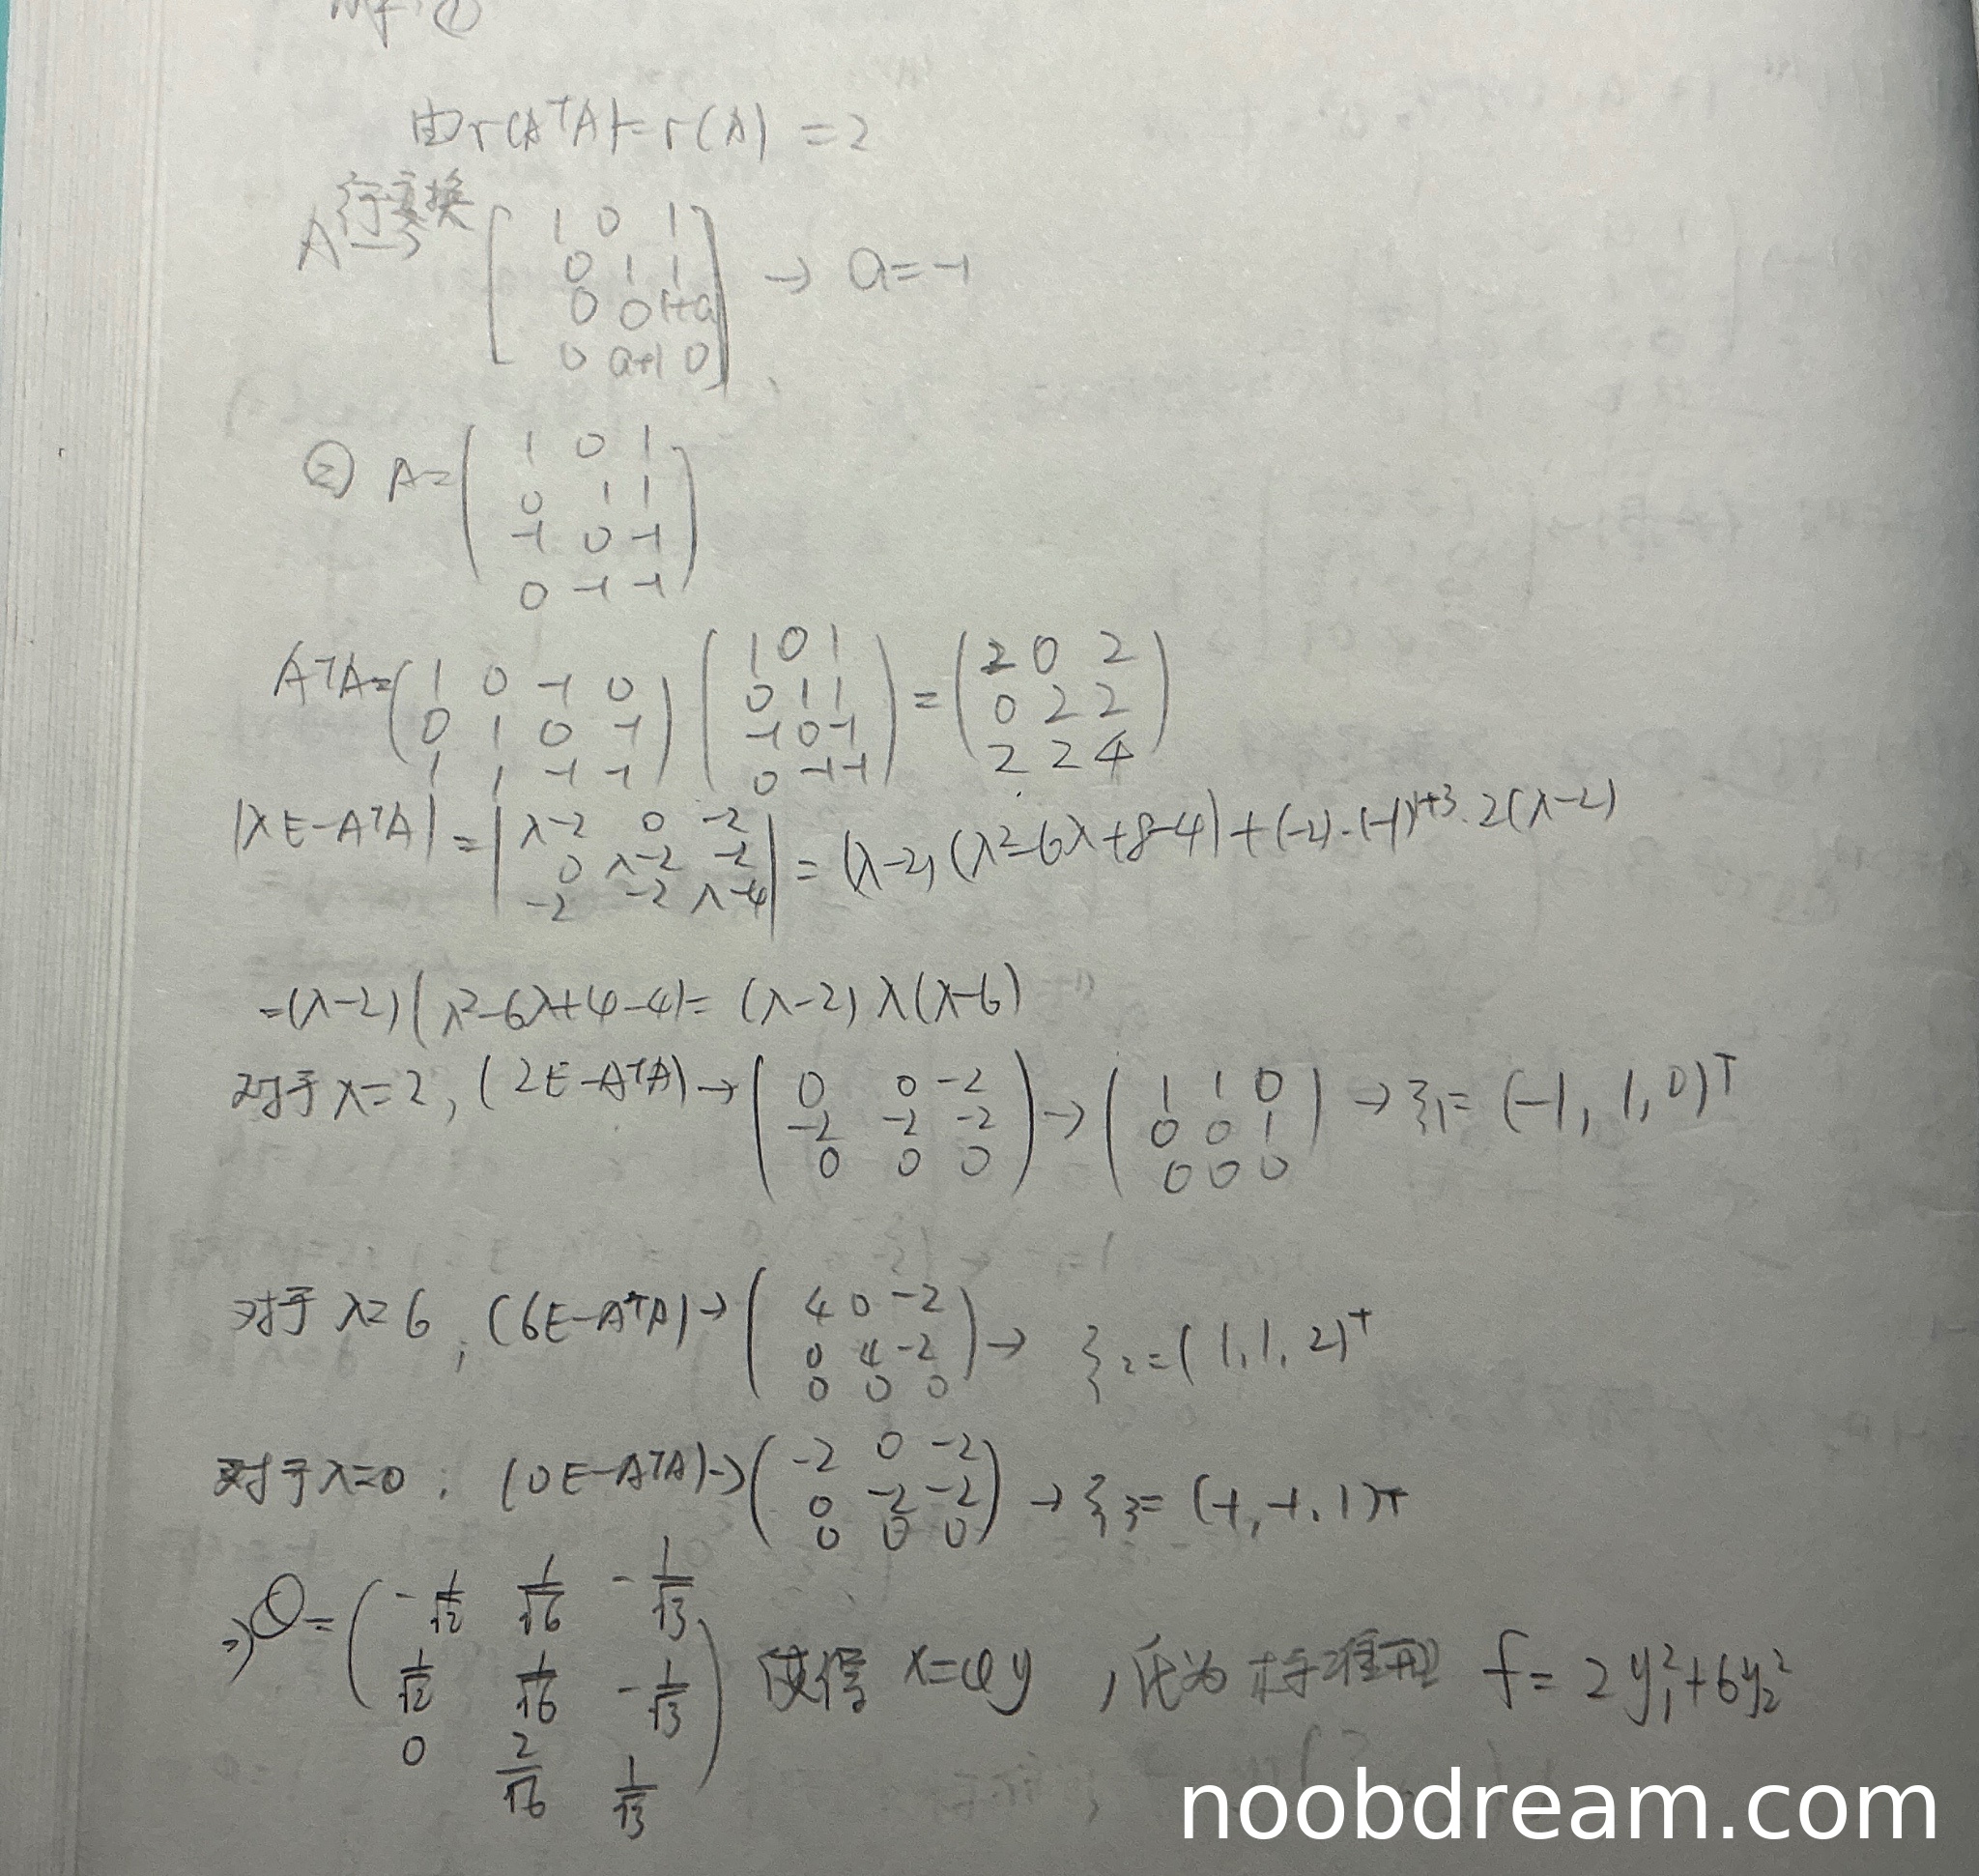 ①
由r(AᵀA)=r(A)=2
A 行变换→ [1 0 1
0 1 1
0 0 1+a
0 a+1 0] → a=-1
② A= (1 0 1
0 1 1
-1 0 -1
0 -1 -1)
AᵀA= (1 0 -1 0
0 1 0 -1
1 1 -1 -1) (1 0 1
0 1 1
-1 0 -1
0 -1 -1) = (2 0 2
0 2 2
2 2 4)
|λE-AᵀA| = |λ-2 0 -2
0 λ-2 -2
-2 -2 λ-4| = (λ-2)(λ²-6λ+8-4)+(-2)·(-1)¹⁺³·2(λ-2)
=(λ-2)(λ²-6λ+4-4)= (λ-2)λ(λ-6)
对于λ=2, (2E-AᵀA)→ (0 0 -2
-2 -2 -2
0 0 0) → (1 1 0
0 0 1
0 0 0) → ξ₁= (-1, 1, 0)ᵀ
对于λ=6, (6E-AᵀA)→ (4 0 -2
0 4 -2
0 0 0) → ξ₂=(1, 1, 2)ᵀ
对于λ=0: (0E-AᵀA)→ (-2 0 -2
0 -2 -2
0 0 0) → ξ₃= (-1, -1, 1)ᵀ
⇒Q= (-1/√2 1/√6 -1/√3
1/√2 1/√6 -1/√3
0 2/√6 1/√3) 使得 x=Qy , 化为标准型 f= 2y₁²+6y₂²
noobdream.com